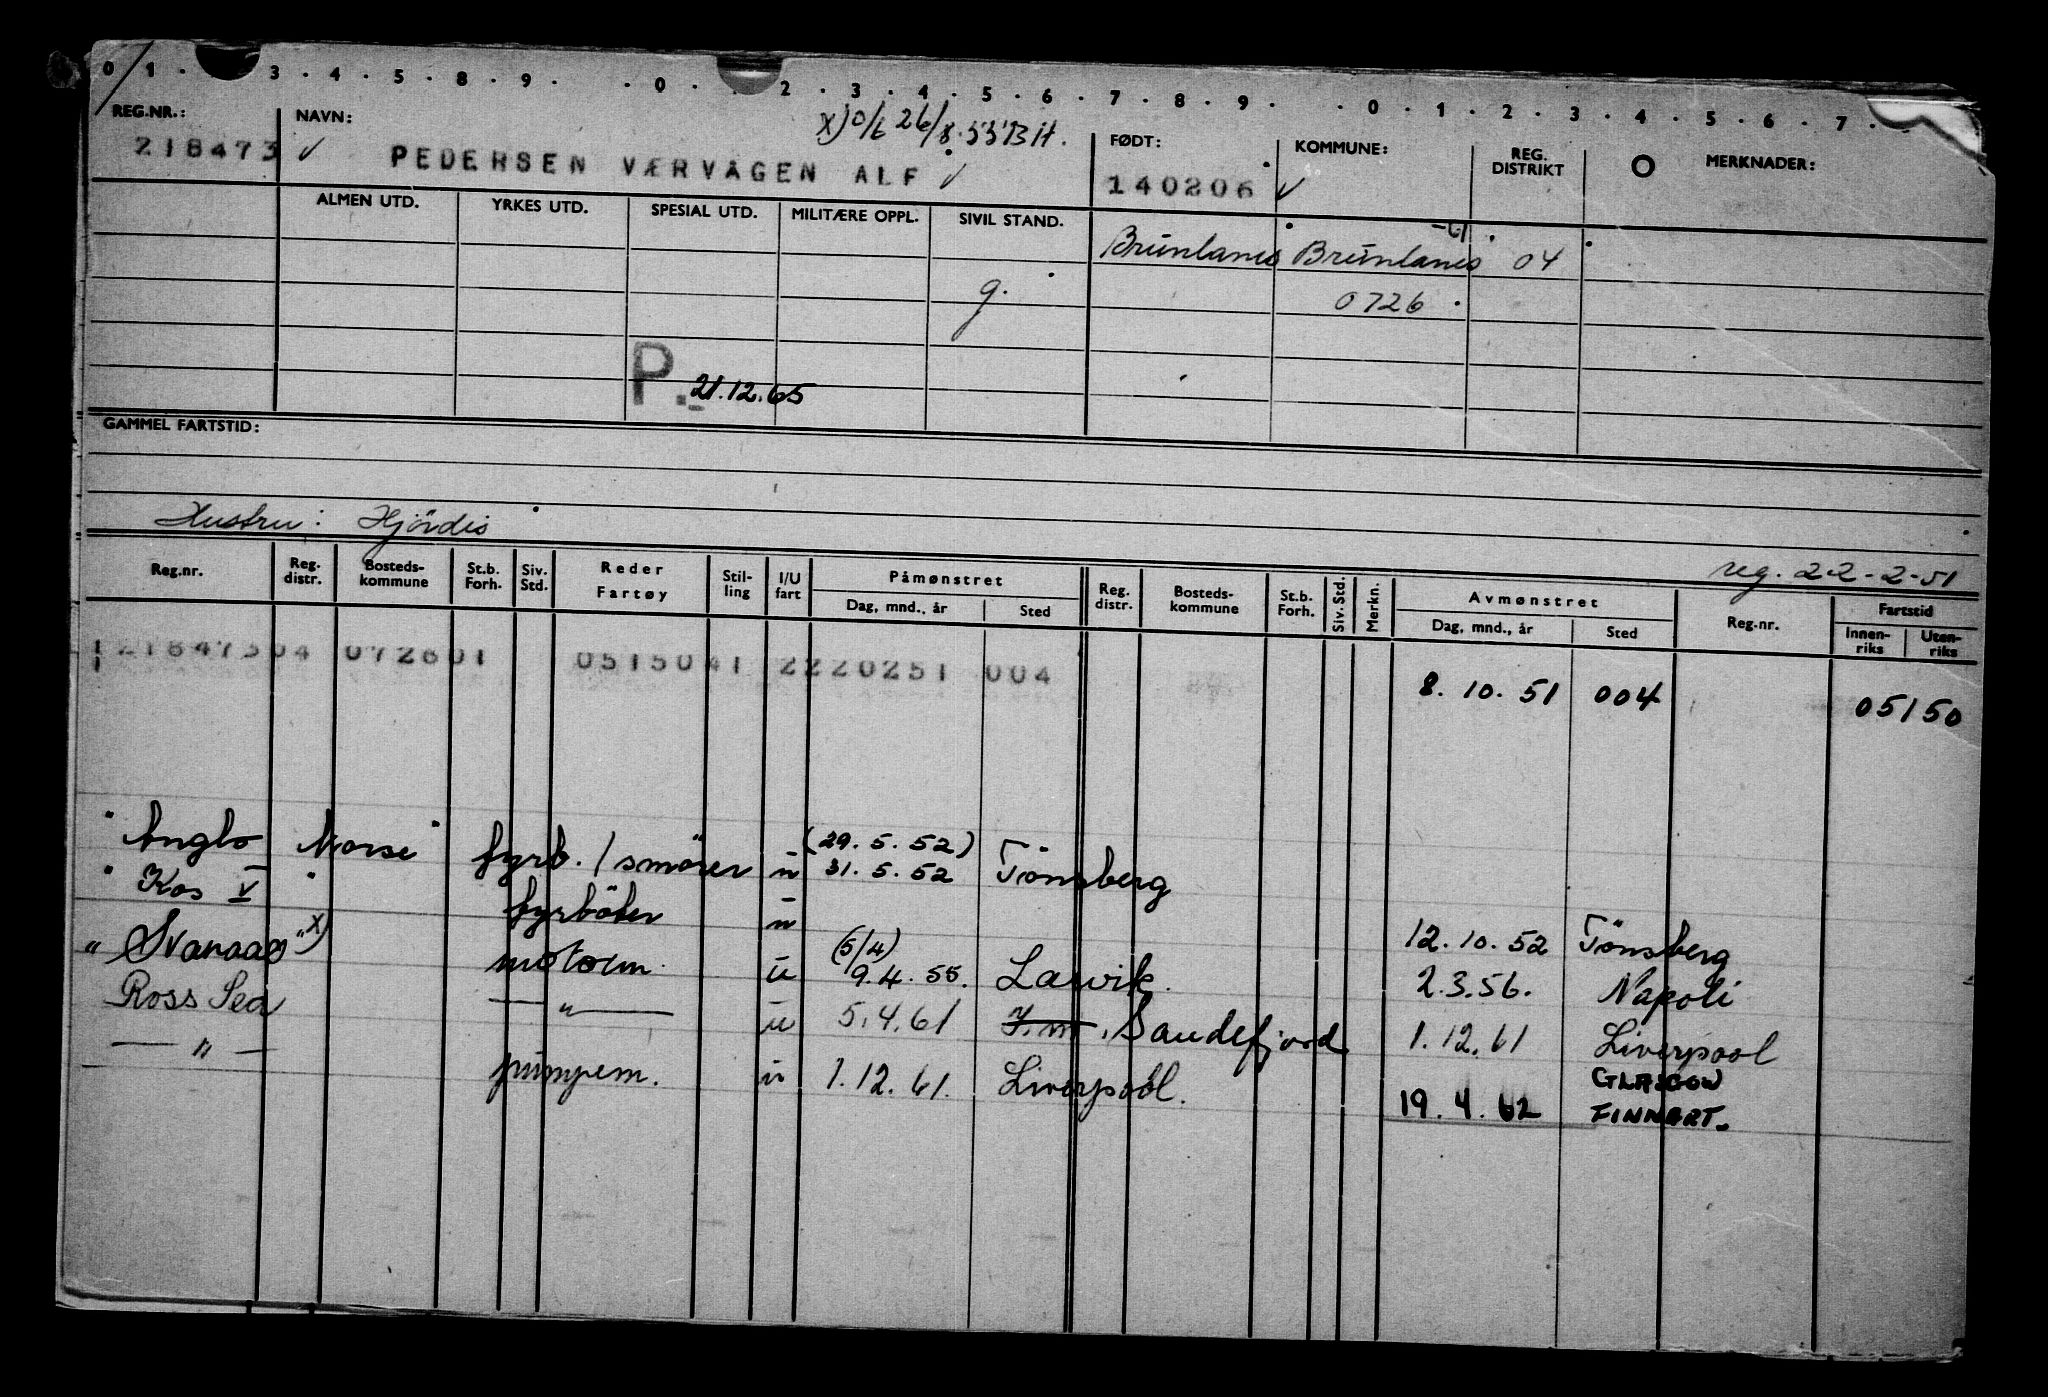 0 1 · 3 · 4 · 5 · 8 · 9 · · 0 · 2 · 3 · 4 · 5 · 6 · 7 · 8 · 9 · · 0 · 1 · 2 · 3 · 4 · 5 · 6 · 7 ·
REG.NR.: NAVN: X) 0/6 26/8.55 BH. FØDT: KOMMUNE: REG. DISTRIKT O MERKNADER:
218473 ✓ PEDERSEN VÆRVAGEN ALF ✓ 140206 ✓
ALMEN UTD. YRKES UTD. SPESIAL UTD. MILITÆRE OPPL. SIVIL STAND.
-61
Brunlanes Brunlanes 04
g. 0726
P. 21.12.65
GAMMEL FARTSTID:
Hustru: Hjördis
reg. 22-2-51
Reg.nr. Reg. distr. Bosteds-kommune St.b. Forh. Siv. Std. Reder Fartøy Stil-ling I/U fart Påmønstret Dag, mnd., år Sted Reg. distr. Bosteds-kommune St.b. Forh. Siv. Std. Merkn. Avmønstret Dag, mnd., år Sted Reg.nr. Fartstid Innen-riks Uten-riks
1 21847304 072601 0515041 2220251 004
1
8.10.51 004 05150
(29.5.52)
" Anglo Norse " fyrb. / smører u 31.5.52 Tönsberg
" Kos V " fyrböter u 12.10.52 Tönsberg
(5/4)
" Svanaas " X) motorm. u 9.4.55. Larvik. 2.3.56. Napoli
Ross Sea — " — u 5.4.61 Sandefjord 1.12.61 Liverpool
— " — pumpem. u 1.12.61. Liverpool. 19.4.62 (GLASGOW) FINNART.